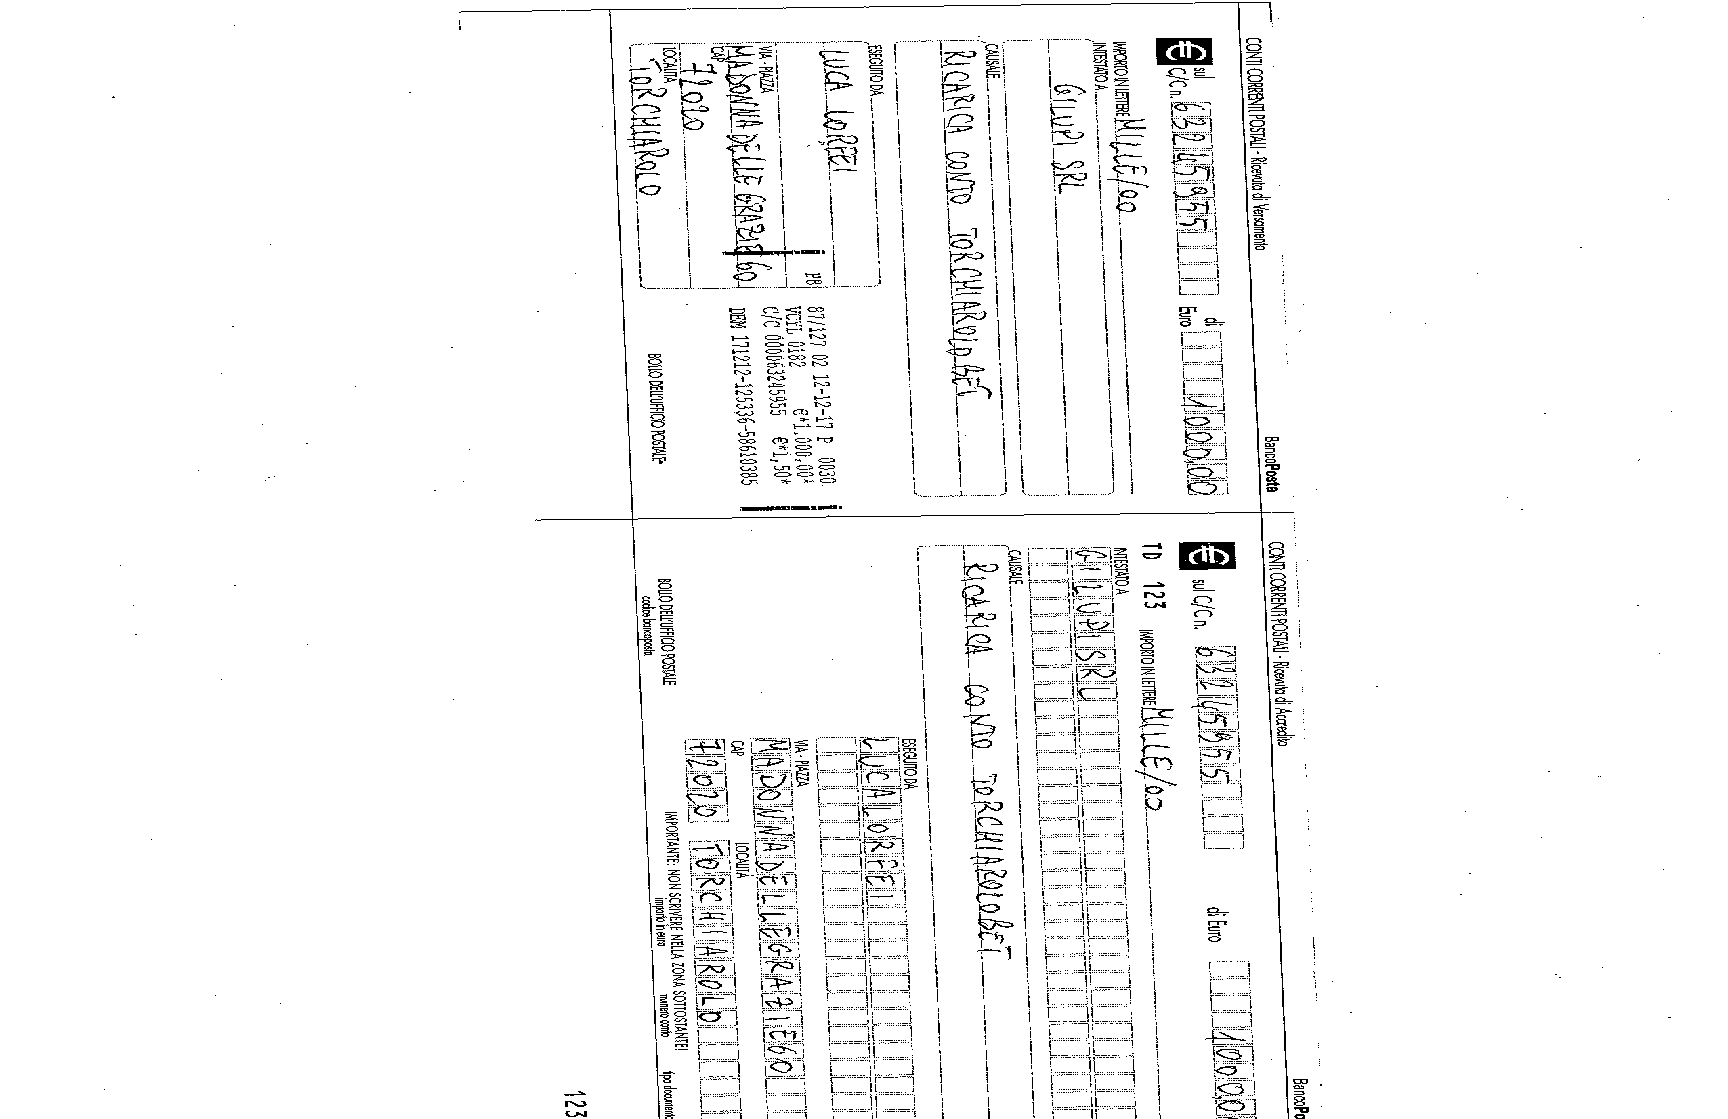 CONTI CORRENTI POSTALI - Ricevuta di Versamento
BancoPosta
€ sul C/C n. 63245955 di Euro 1000,00
IMPORTO IN LETTERE MILLE/00
INTESTATO A
GILUPI SRL
CAUSALE
RICARICA CONTO TORCHIAROLOBET
ESEGUITO DA
LUCA LORFEI
VIA - PIAZZA
MADONNA DELLE GRAZIE 60
CAP
72020
LOCALITÀ
TORCHIAROLO
87/127 02 12-12-17 P 0030
VCYL 0182 €*1.000,00*
C/C 000063245955 €*1,50*
DEM 171212-125336-58610385
BOLLO DELL'UFFICIO POSTALE
CONTI CORRENTI POSTALI - Ricevuta di Accredito
BancoPo
€ sul C/C n. 63245955 di Euro 1000,0
TD 123 IMPORTO IN LETTERE MILLE/00
INTESTATO A
GILUPI SRL
CAUSALE
RICARICA CONTO TORCHIAROLOBET
ESEGUITO DA
LUCA LORFEI
VIA - PIAZZA
MADONNA DELLE GRAZIE 60
CAP LOCALITÀ
72020 TORCHIAROLO
BOLLO DELL'UFFICIO POSTALE
codice bancoposta
IMPORTANTE: NON SCRIVERE NELLA ZONA SOTTOSTANTE!
importo in euro numero conto tipo documento
123